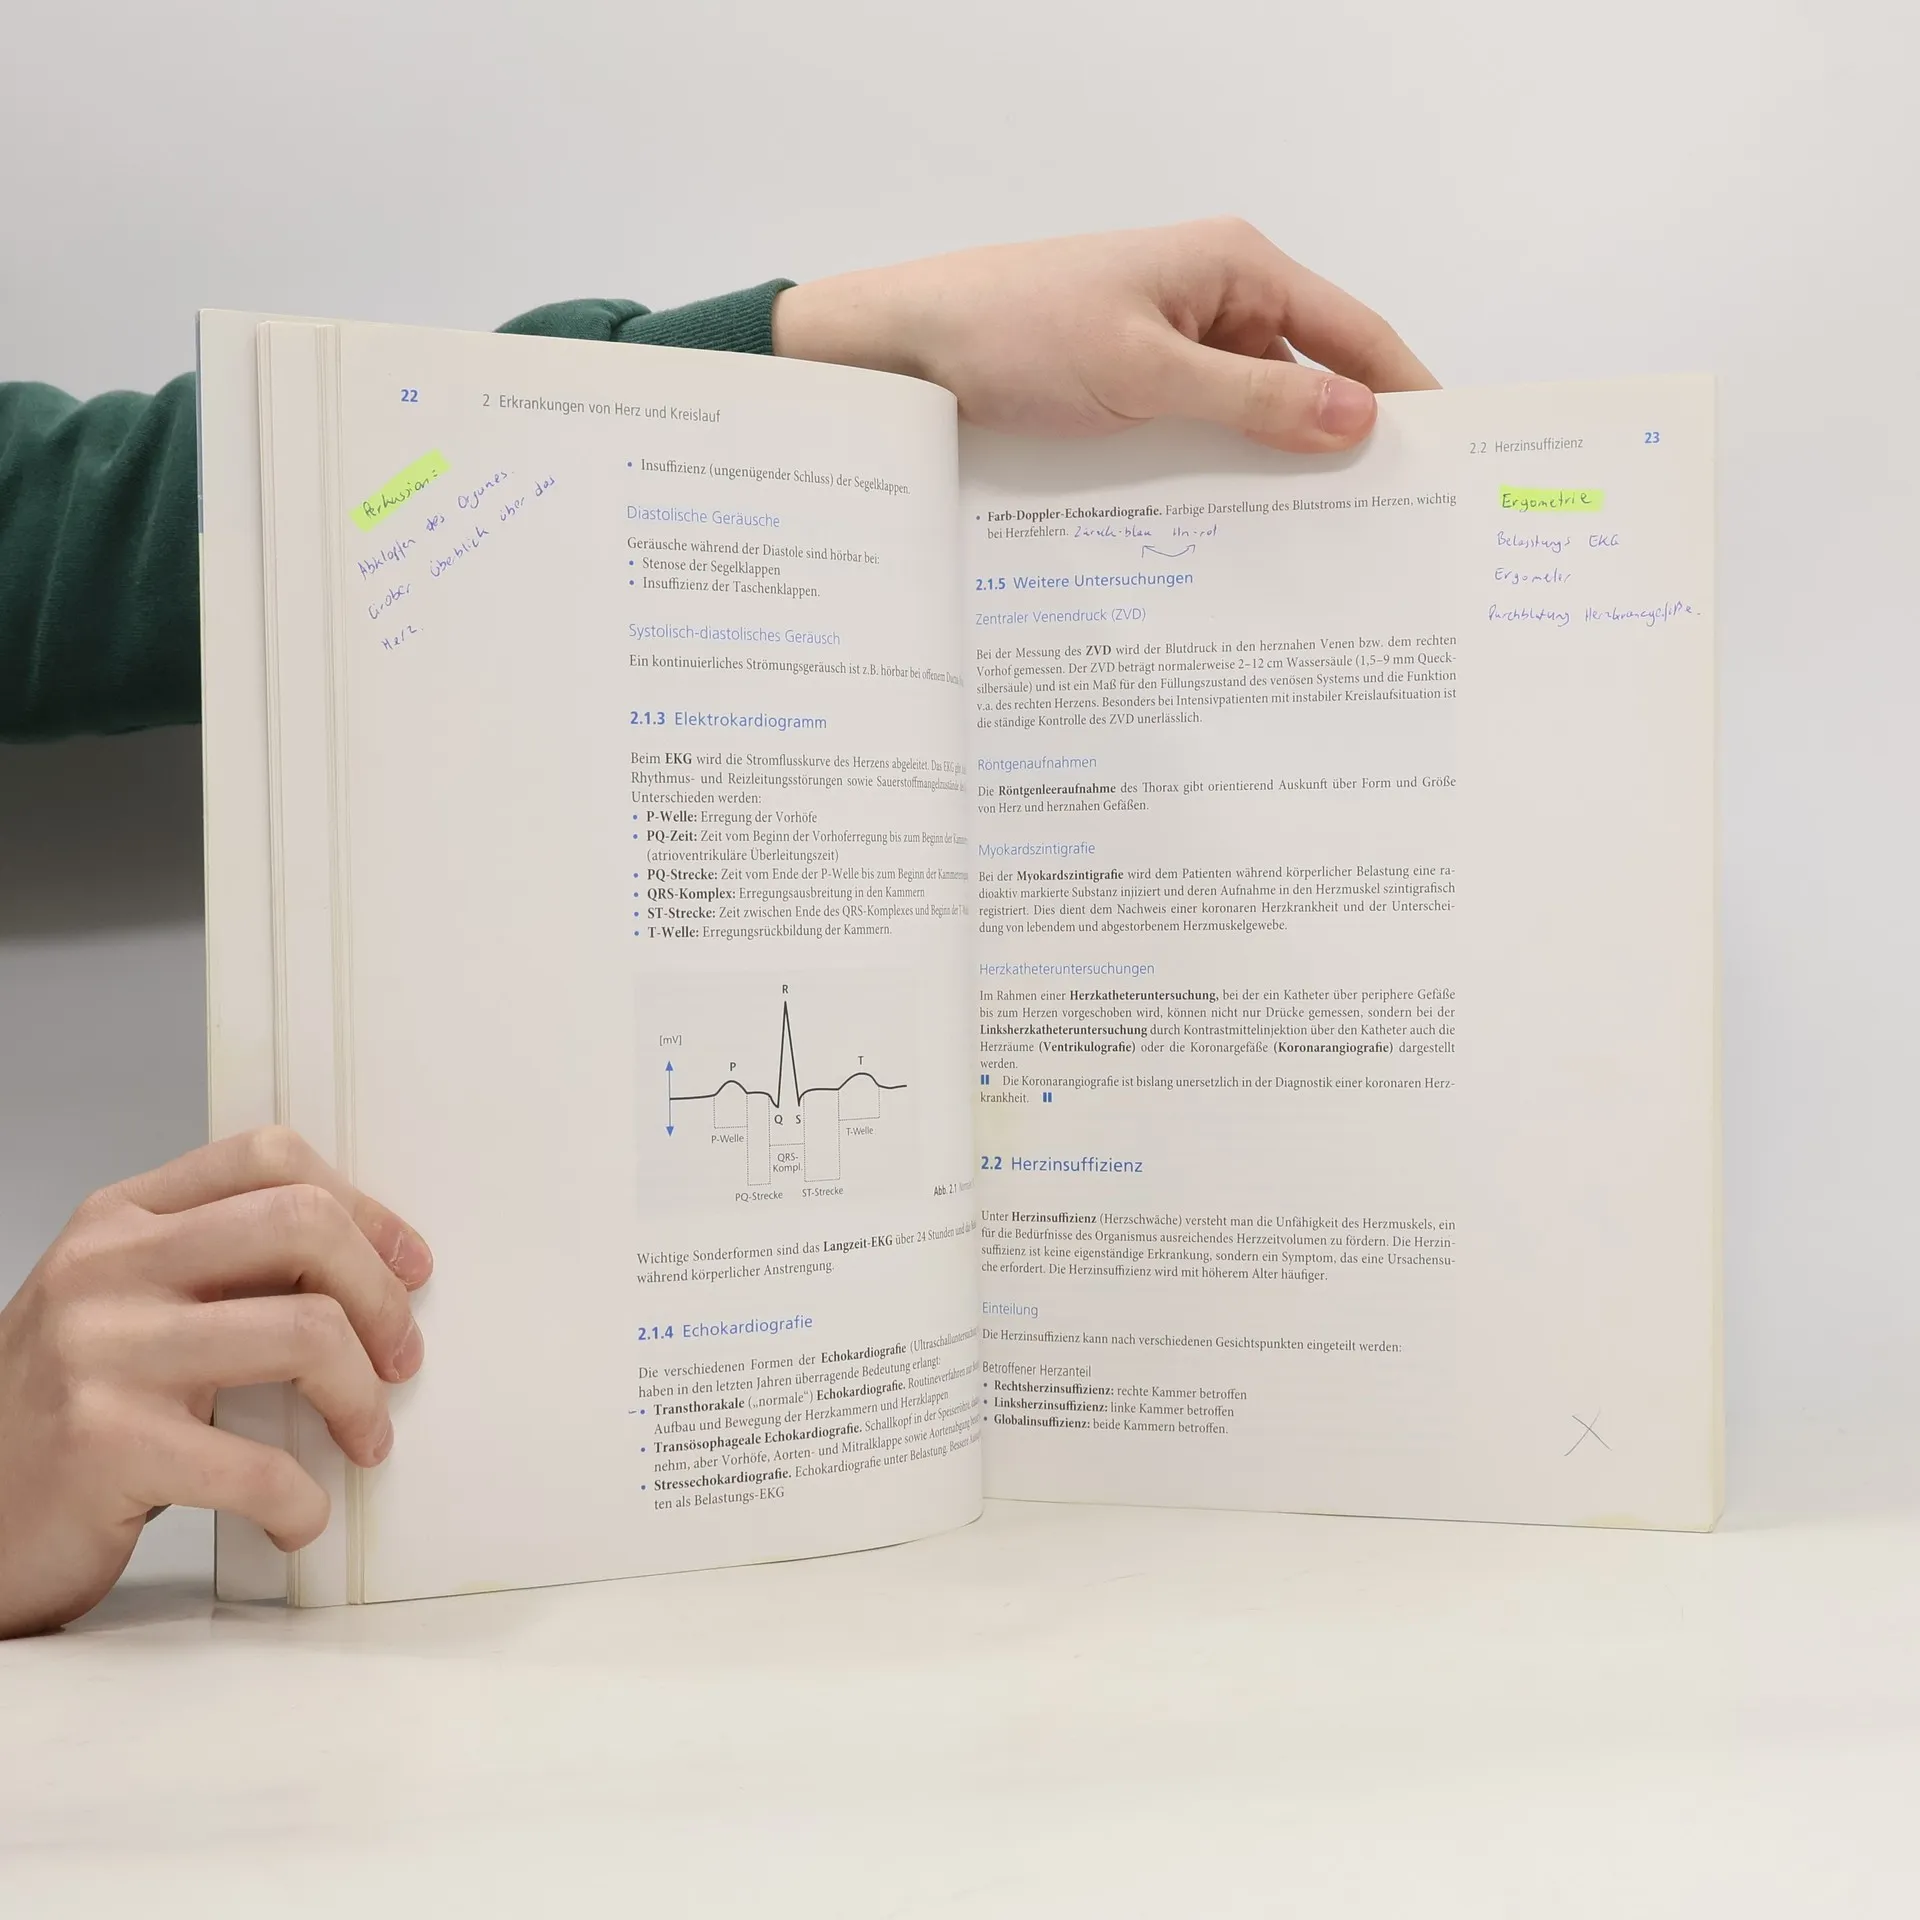 22 2 Erkrankungen von Herz und Kreislauf
Perkussion=
Abklopfen des Organes.
Grober überblick über das
Herz.
• Insuffizienz (ungenügender Schluss) der Segelklappen.
Diastolische Geräusche
Geräusche während der Diastole sind hörbar bei:
• Stenose der Segelklappen
• Insuffizienz der Taschenklappen.
Systolisch-diastolisches Geräusch
Ein kontinuierliches Strömungsgeräusch ist z.B. hörbar bei offenem
2.1.3 Elektrokardiogramm
Beim EKG wird die Stromflusskurve des Herzens abgeleitet. Das EKG
Rhythmus- und Reizleitungsstörungen sowie Sauerstoffmangelzustände
Unterschieden werden:
• P-Welle: Erregung der Vorhöfe
• PQ-Zeit: Zeit vom Beginn der Vorhoferregung bis zum Beginn der
(atrioventrikuläre Überleitungszeit)
• PQ-Strecke: Zeit vom Ende der P-Welle bis zum Beginn der
• QRS-Komplex: Erregungsausbreitung in den Kammern
• ST-Strecke: Zeit zwischen Ende des QRS-Komplexes und Beginn der
• T-Welle: Erregungsrückbildung der Kammern.
R
[mV]
P
T
Q S
P-Welle
T-Welle
QRS-
Kompl.
PQ-Strecke ST-Strecke
Abb. 2.1
Wichtige Sonderformen sind das Langzeit-EKG über 24 Stunden und
während körperlicher Anstrengung.
2.1.4 Echokardiografie
Die verschiedenen Formen der Echokardiografie
haben in den letzten Jahren überragende Bedeutung erlangt:
• Transthorakale („normale“) Echokardiografie. Routineverfahren
Aufbau und Bewegung der Herzkammern und Herzklappen
• Transösophageale Echokardiografie. Schallkopf in der Speiseröhre,
nehm, aber Vorhöfe, Aorten- und Mitralklappe sowie Aortenabgang
• Stressechokardiografie. Echokardiografie unter Belastung.
ten als Belastungs-EKG
2.2 Herzinsuffizienz 23
• Farb-Doppler-Echokardiografie. Farbige Darstellung des Blutstroms im Herzen, wichtig
bei Herzfehlern. Zürück-blau Hin-rot
2.1.5 Weitere Untersuchungen
Zentraler Venendruck (ZVD)
Bei der Messung des ZVD wird der Blutdruck in den herznahen Venen bzw. dem rechten
Vorhof gemessen. Der ZVD beträgt normalerweise 2–12 cm Wassersäule (1,5–9 mm Queck-
silbersäule) und ist ein Maß für den Füllungszustand des venösen Systems und die Funktion
v.a. des rechten Herzens. Besonders bei Intensivpatienten mit instabiler Kreislaufsituation ist
die ständige Kontrolle des ZVD unerlässlich.
Röntgenaufnahmen
Die Röntgenleeraufnahme des Thorax gibt orientierend Auskunft über Form und Größe
von Herz und herznahen Gefäßen.
Myokardszintigrafie
Bei der Myokardszintigrafie wird dem Patienten während körperlicher Belastung eine ra-
dioaktiv markierte Substanz injiziert und deren Aufnahme in den Herzmuskel szintigrafisch
registriert. Dies dient dem Nachweis einer koronaren Herzkrankheit und der Unterschei-
dung von lebendem und abgestorbenem Herzmuskelgewebe.
Herzkatheteruntersuchungen
Im Rahmen einer Herzkatheteruntersuchung, bei der ein Katheter über periphere Gefäße
bis zum Herzen vorgeschoben wird, können nicht nur Drücke gemessen, sondern bei der
Linksherzkatheteruntersuchung durch Kontrastmittelinjektion über den Katheter auch die
Herzräume (Ventrikulografie) oder die Koronargefäße (Koronarangiografie) dargestellt
werden.
Die Koronarangiografie ist bislang unersetzlich in der Diagnostik einer koronaren Herz-
krankheit.
2.2 Herzinsuffizienz
Unter Herzinsuffizienz (Herzschwäche) versteht man die Unfähigkeit des Herzmuskels, ein
für die Bedürfnisse des Organismus ausreichendes Herzzeitvolumen zu fördern. Die Herzin-
suffizienz ist keine eigenständige Erkrankung, sondern ein Symptom, das eine Ursachensu-
che erfordert. Die Herzinsuffizienz wird mit höherem Alter häufiger.
Einteilung
Die Herzinsuffizienz kann nach verschiedenen Gesichtspunkten eingeteilt werden:
Betroffener Herzanteil
• Rechtsherzinsuffizienz: rechte Kammer betroffen
• Linksherzinsuffizienz: linke Kammer betroffen
• Globalinsuffizienz: beide Kammern betroffen.
Ergometrie
Belastungs EKG
Ergometer
Durchblutung Herzkranzgefäße.